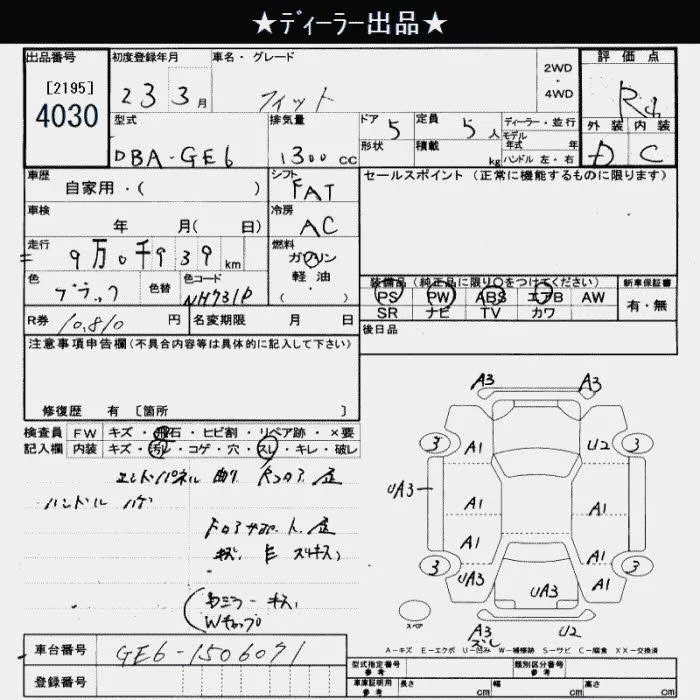 ★ディーラー出品★
出品番号 初度登録年月 車名・グレード 2WD・4WD 評価点
[2195]
4030
23 3月 フィット
外装 内装
D C
型式 排気量 ドア 定員 ディーラー・並行
DBA-GE6 1300cc 5 5人 モデル年式 年
形状 積載 kg ハンドル 左・右
車歴 シフト セールスポイント (正常に機能するものに限ります)
自家用・( ) FAT
車検 冷房
年 月( 日) AC
走行 燃料
9万0千939km ガソリン
軽・油
・( )
色 色替 色コード
ブラック NH731P
装備品 (純正品に限り○をつけてください) 新車保証書
PS PW ABS エアB AW 有・無
SR ナビ TV カワ
R券 10,810円 名変期限 月 日
後日品
注意事項申告欄(不具合内容等は具体的に記入して下さい)
修復歴 有 [箇所 ]
検査員 FW キズ・飛石・ヒビ割・リペア跡・×要
記入欄 内装 キズ・汚レ・コゲ・穴・スレ・キレ・破レ
エンドパネル 曲り
ハンドル ハゲ
Wチップ
A3 A3
3 A1 U2 3
UA3 A1 A1
A1 A1
3 UA3 UA3 A1 3
スペア
A3 U2
A-キズ E-エクボ U-凹み W-補修跡 S-サビ C-腐食 XX-交換済
車台番号 GE6-1506071
登録番号
型式指定番号 参考 類別区分番号 参考
車庫証明用 参考 長さ cm 幅 cm 高さ cm